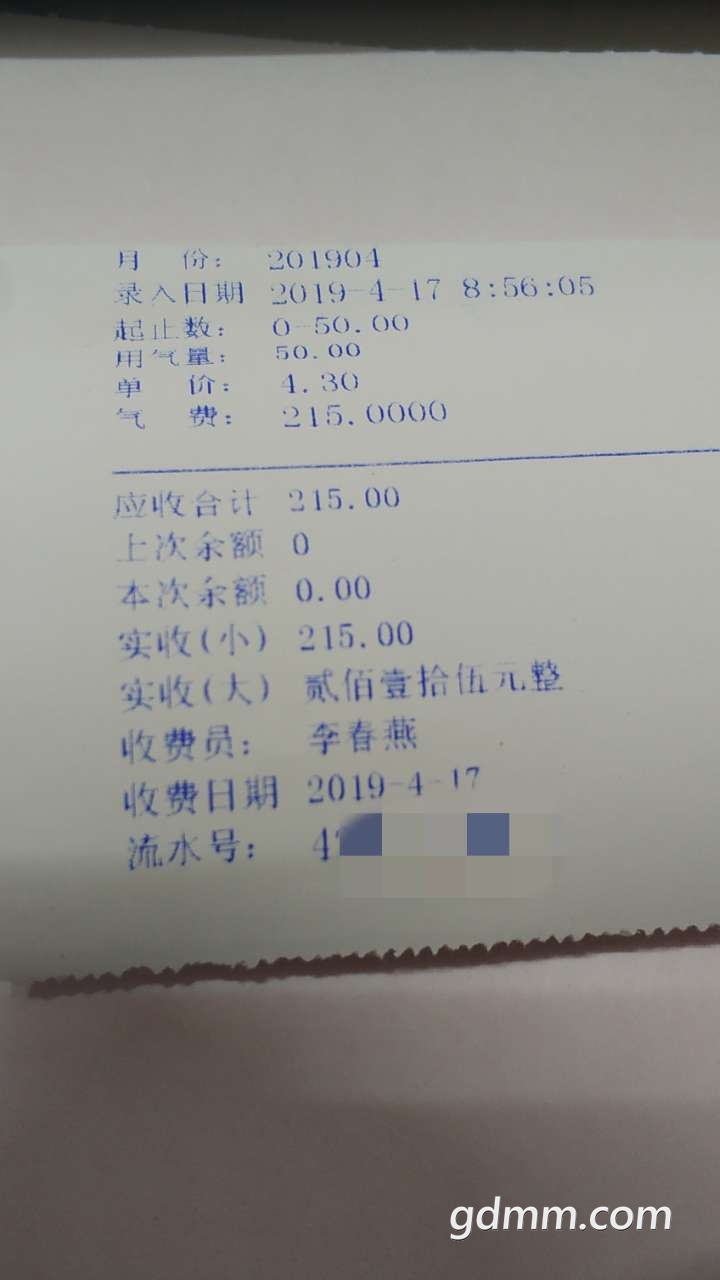 月 份： 201904
录入日期 2019-4-17 8:56:05
起止数： 0-50.00
用气量： 50.00
单 价： 4.30
气 费： 215.0000
应收合计 215.00
上次余额 0
本次余额 0.00
实收(小) 215.00
实收(大) 贰佰壹拾伍元整
收费员： 李春燕
收费日期 2019-4-17
流水号： 4
gdmm.com